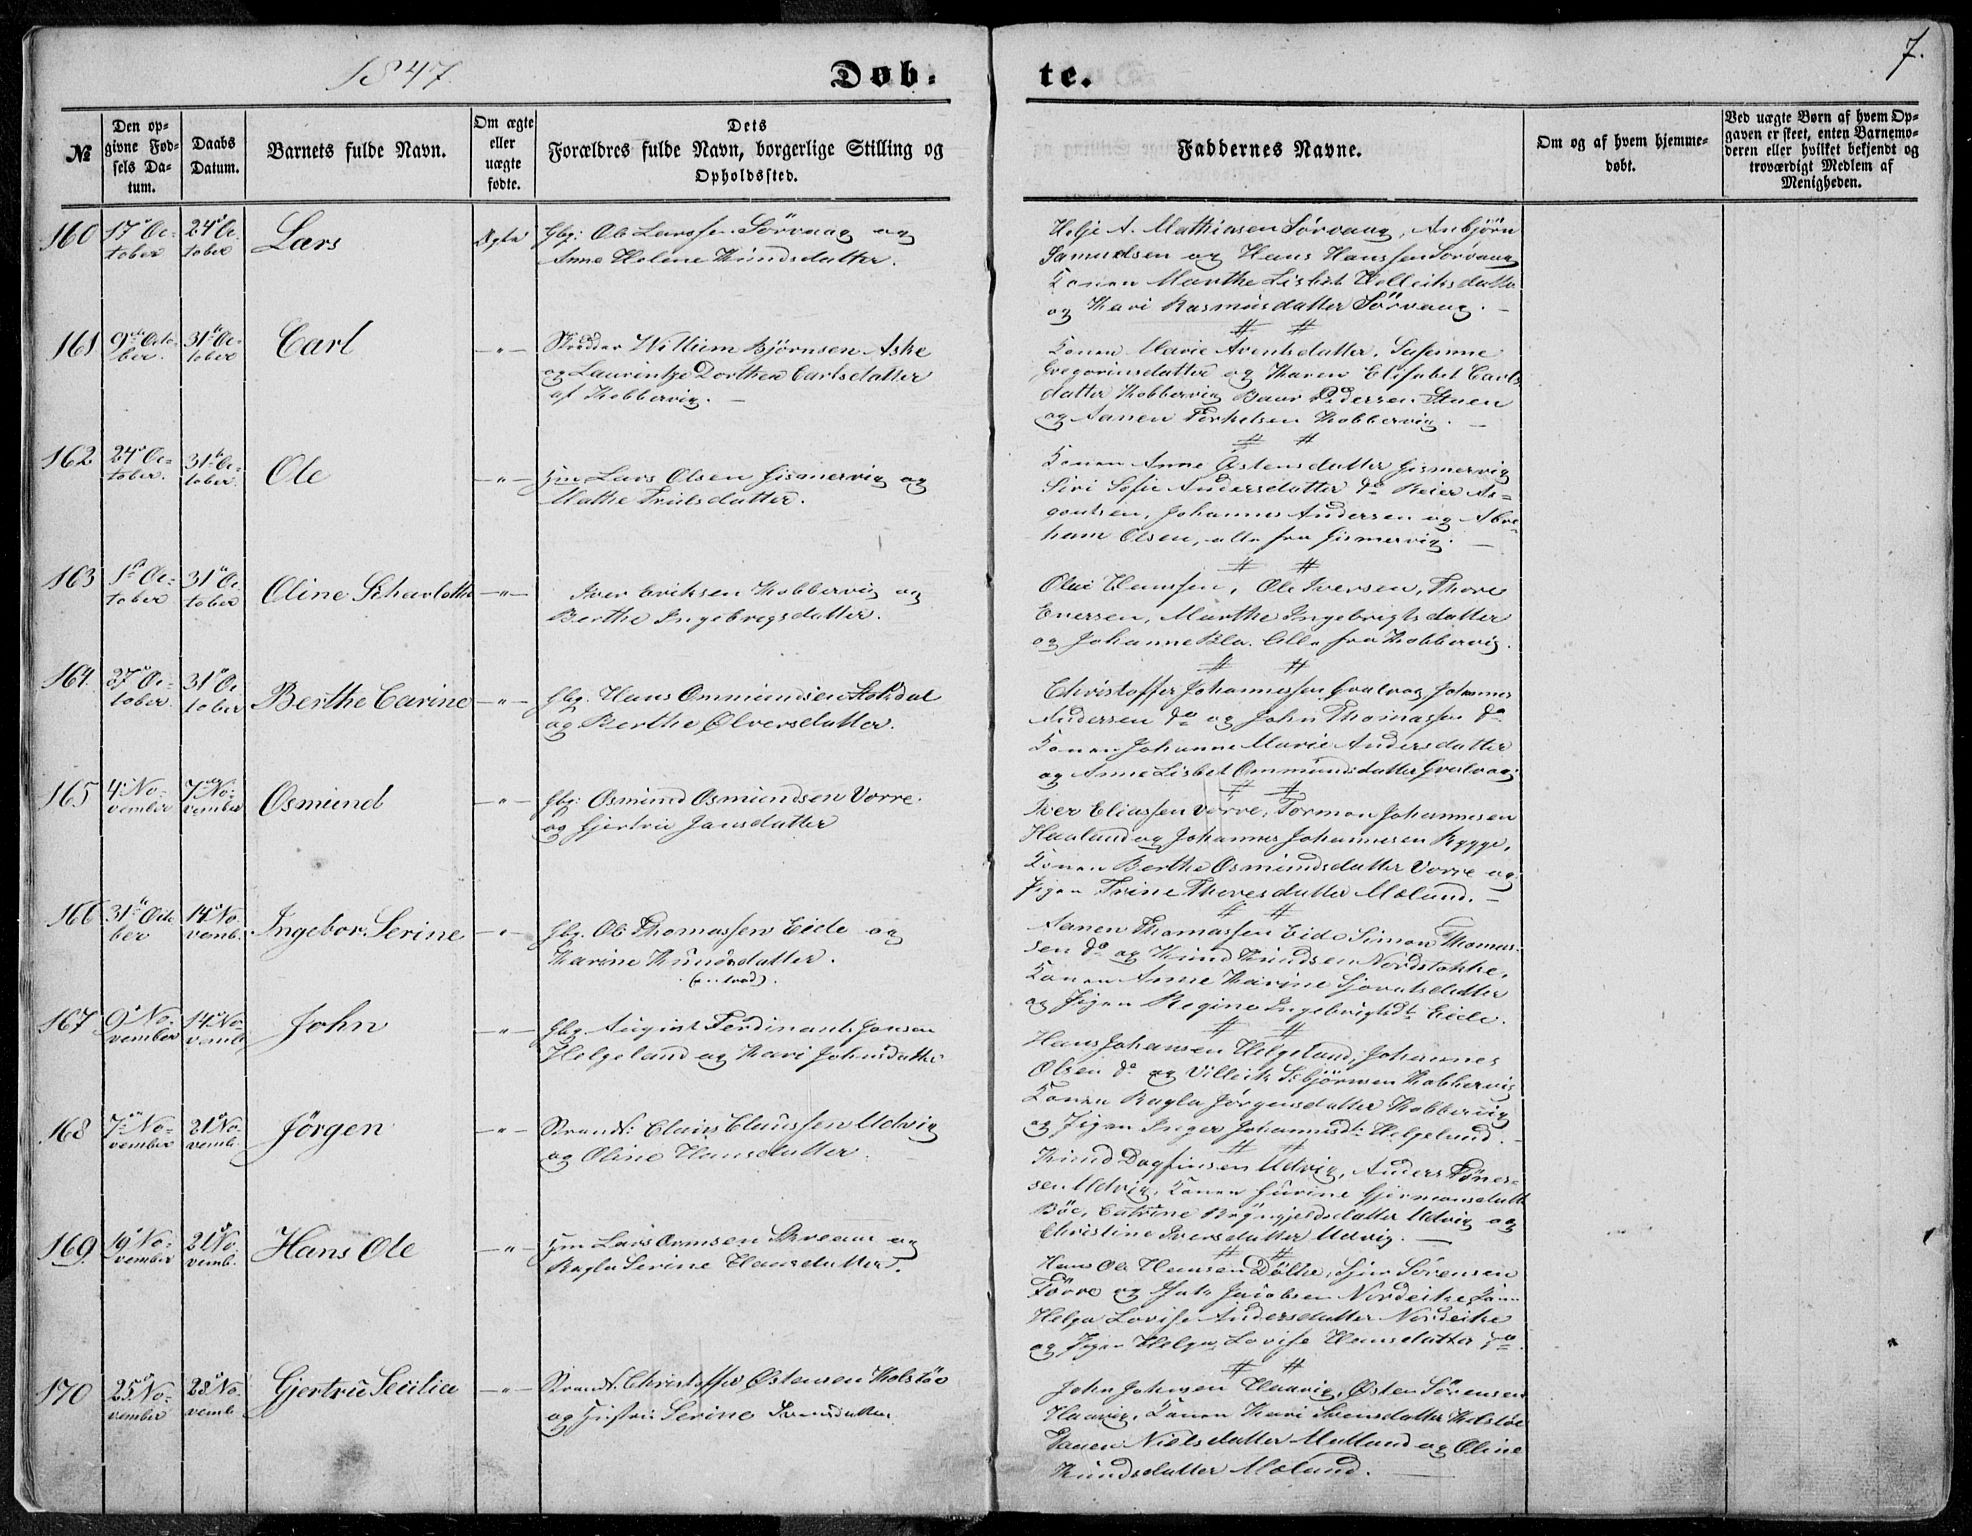 1847.
Døb-
te.
7.
№
Den op-
givne Fød-
sels Da-
tum.
Daabs
Datum.
Barnets fulde Navn.
Om ægte
eller
uægte
fødte.
Dets
Forældres fulde Navn, borgerlige Stilling og
Opholdssted.
Faddernes Navne.
Om og af hvem hjemme-
døbt.
Ved uægte Børn af hvem Op-
gaven er skeet, enten Barnemo-
deren eller hvilket bekjendt og
troværdigt Medlem af
Menigheden.
160
17de Oc-
tober
24de Oc
tober
Lars
Ægte
Gbg: Ole Larssen Sörvaag og
Anne Helene Knudsdatter.
Helje A. Mathiasen Sörvaag, Anbjörn
Samuelsen og Hans Hanssen Sörvaag
Konen Marthe Lisbet
og Kari Rasmusdatter Sörvaag.
161
9de Octo-
ber.
31te Oc-
tober
Carl
-"-
Willum Björnsen Aske
og Laurentze Dorthea Carlsdatter
af Kobbervig.
Konen Marie Arentsdatter, Susanne
Gregoriusdatter og Karen Elisabet Carls
datter Kobbervig Baar Pedersen Stuen
og Aanen Terkelsen Kobbervig.
162
24de Oc-
tober.
31te Oc-
tober.
Ole
-"-
Hm Lars Olsen Gismervig og
Mathe Trulsdatter.
Konen Anne Östensdatter Gismervig
Siri Sofie Andersdatter do Reier As-
gautsen, Johannes Andersen og Abra-
ham Olsen, alle fra Gismervig.
163
1de Oc-
tober
31te Oc
tober
Oline Scharlotte
-"-
Iver Eriksen Kobbervig og
Berthe Ingebregsdatter.
Olai Hanssen, Ole Iversen, Thore
Enersen, Marthe Ingebrigtsdatter
og Johanne Alle fra Kobbervig.
164.
27de Oc-
tober.
31te Oc
tober
Berthe Carine
-"-
Gbg. Hans Ommundsen Stokdal
og Berthe Olversdatter.
Christoffer Johannessen Gvalvaag, Johannes
Andersen do og John Thomassen do
Konen Johanne Marie Andersdatter
og Anne Lisbet Ommundsdatter Gvalvaag
165
4de No-
vember
7de No-
vember
Osmund
-"-
Gbg: Osmund Osmundsen Vorre
og Gjertrue Jansdatter
Iver Eliassen Vorre, Tormon Johannesen
Haaland og Johannes Johannesen Rygge,
Konen Berthe Osmundsdatter Vorre og
Pigen Trine Thoresdatter Moland.
166
31te Octo
ber
14de No
vemb.
Ingebor Serine
-"-
Gbg. Ole Thomassen Eide og
Karine Knudsdatter.
Aanen Thomassen Eide Simon Thomas-
sen do og Knud Knudsen Nordstokke,
Konen Anne Karine Sjovatsdatter
og Pigen Regine Ingebrigtsdtr Eide.
167
9de No-
vember
14de No-
vemb
John
-"-
Gbg. August Ferdinant Jonsen
Helgeland og Kari Johnsdatter
Hans Johansen Helgeland, Johannes
Olsen do og Villeik Kobbervig
Konen Ragla Jörgensdatter Kobbervig
og Pigen Inger Johannesdtr Helgeland.
168
7de No-
vember
21de No-
vemb.
Jörgen
-"-
Strands: Claus Claussen Udvig
og Oline Hansdatter.
Knud Dagfinsen Udvig, Anders Tönes-
sen Udvig, Konen Gurine Gjermansdatt
Böe, Catrine Udvig og
Christine Iversdatter Udvig.
169.
19de No-
vember
21de No-
vemb.
Hans Ole
-"-
Hm Lars Ormsen og
Ragla Serine Hansdatter.
Hans Ole Hansen Dölke, Sjur Sörensen
Förre og Jacobsen Nordeike, Konen
Helga Lovise Andersdatter Nordeike
og Pigen Helga Lovise Hansdatter do
170
25de No-
vember
28de No-
vemb
Gjertrue Secilia
-"-
Strands. Christoffer Östensen Kolstöe
og Serine Svensdatter
John Johnsen Haavig, Östen Sörensen
Haavig, Konen Kari Svensdatter Kolstöe
Nielsdatter Mølland og Oline
Knudsdatter Moland.